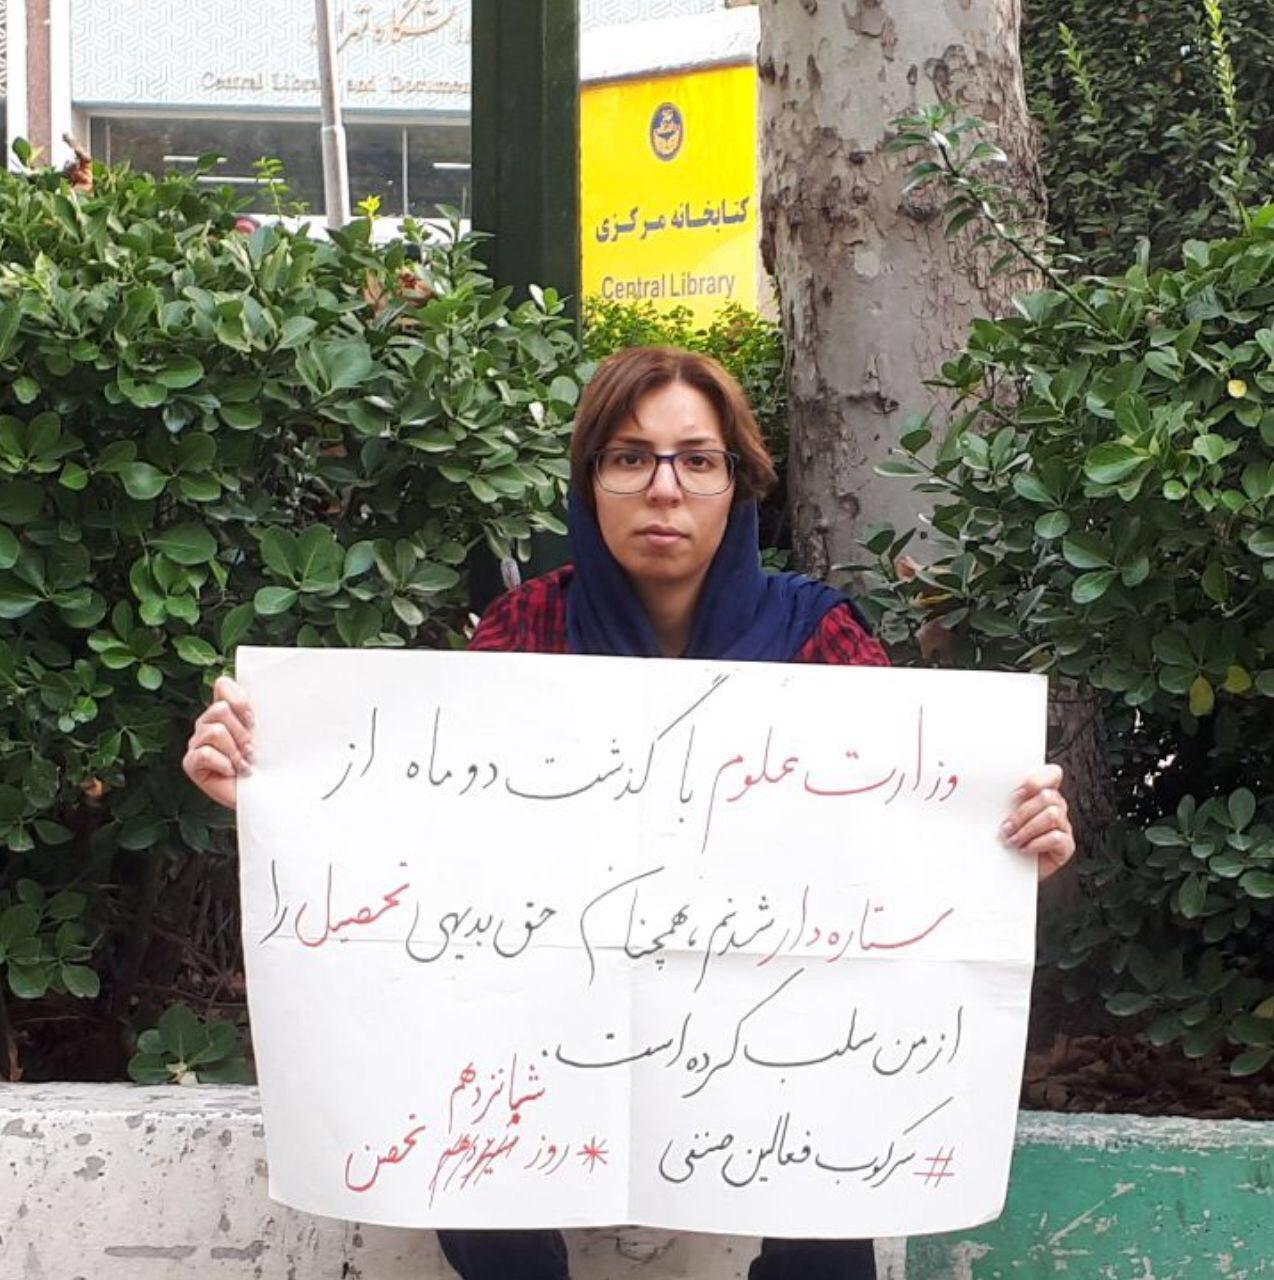 دانشگاه تهران
Central Library and Documen
کتابخانه مرکزی
Central Library
وزارت علوم با گذشت دو ماه از
ستاره دار شدنم، همچنان حق بدیهی تحصیل را
از من سلب کرده است.
شانزدهم
* روز تحصن
# سرکوب فعالین صنفی